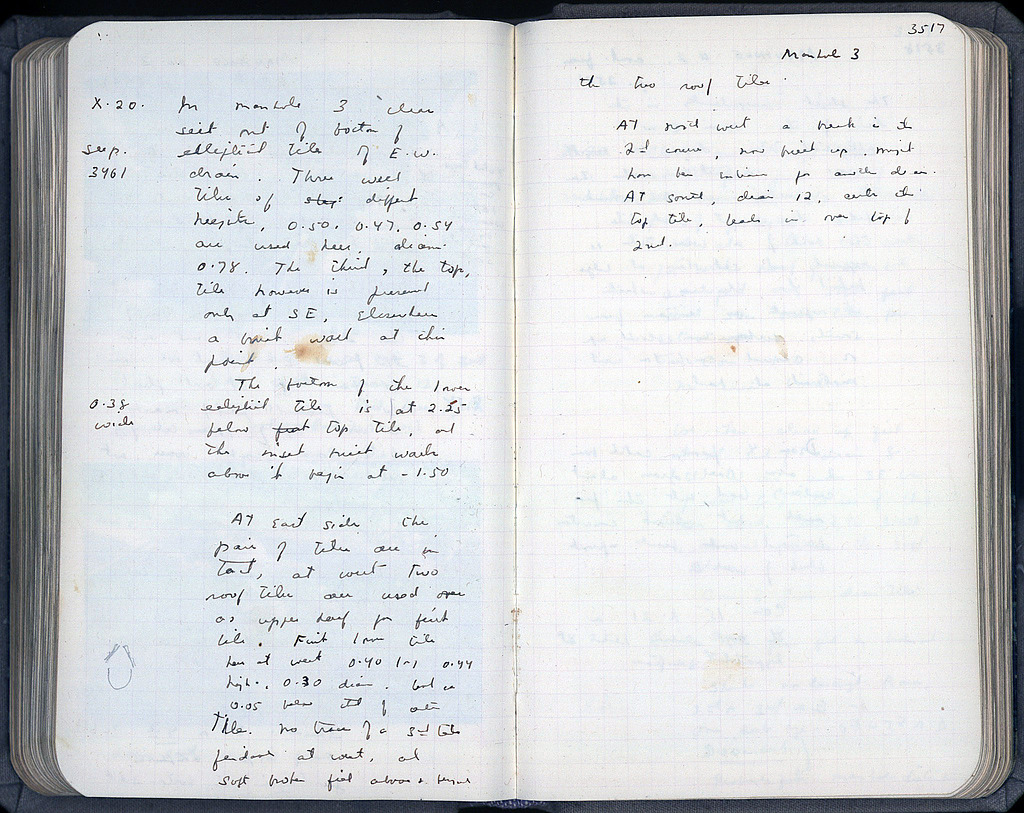 X·20. In manhole 3 clear
silt out of bottom of
see p. elliptical tile of E.W.
3461 drain. Three well
tiles of different
heights, 0.50, 0.47, 0.54
are used here, diam.
0.78. The third, the top,
tile however is preserved
only at SE, elsewhere
a brick wall at this
point.
The bottom of the lower
0.38 elliptical tile is at 2.25
wide below top tile, and
the inset brick walls
above it begin at -1.50
At East side the
pair of tiles are in
tact, at west two
roof tiles are used
as upper half for first
tile. First lower tile
here at west 0.40 0.44
high, 0.30 diam.
0.05 below of
tile. No trace of a 3rd tile
at west, and
soft broken above &
3517
Manhole 3
the two roof tiles.
At west a break in the
2nd course, now filled up. Might
have been for another drain.
At south, drain 12, the
top tile, leads in over top of
2nd.